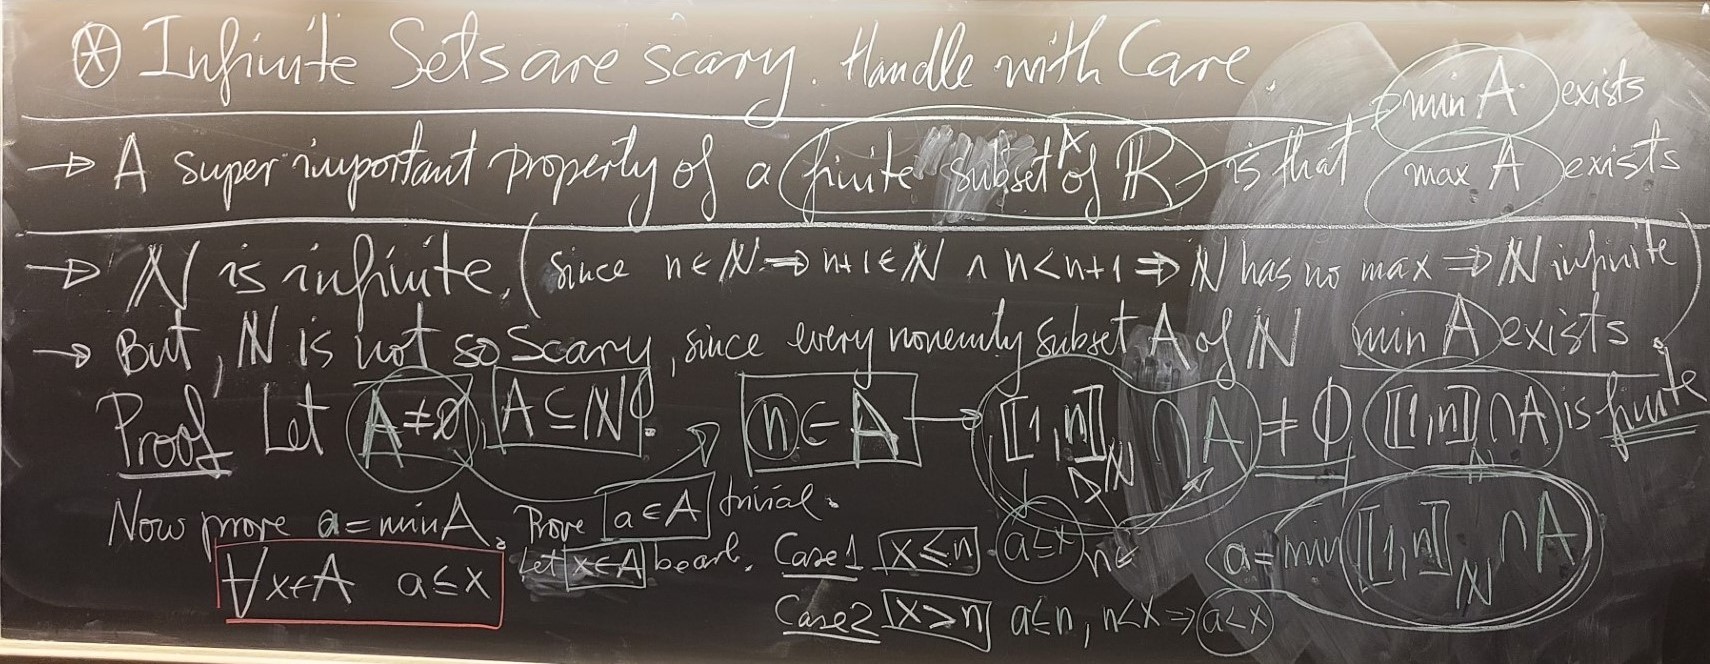 ⊛ Infinite Sets are scary. Handle with Care.
→ A super important property of a finite subset A of ℝ is that min A exists
max A exists
→ ℕ is infinite. (since n∈ℕ ⇒ n+1∈ℕ ∧ n<n+1 ⇒ ℕ has no max ⇒ ℕ infinite)
→ But, ℕ is not so scary, since every nonemty subset A of ℕ min A exists.
Proof Let A≠∅, A⊆ℕ. n∈A → ⟦1,n⟧_ℕ ∩ A ≠ ∅ ⟦1,n⟧_ℕ ∩ A is finite
Now prove a = min A. Prove a∈A trivial. a = min ⟦1,n⟧_ℕ ∩ A
∀x∈A a≤x Let x∈A be arb. Case 1 x≤n a≤x
Case 2 x>n a≤n, n<x ⇒ a<x